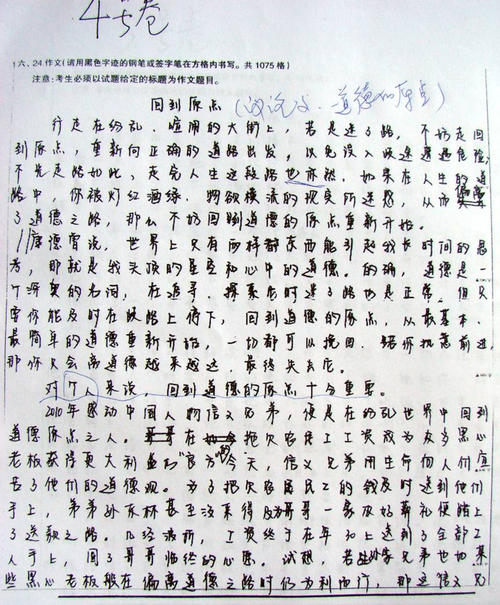 45卷
六、24 作文(请用黑色字迹的钢笔或签字笔在方格内书写。共 1075 格)
注意:考生必须以试题给定的标题为作文题目。
回到原点 (议论文、道德的原点)
行走在纷乱、喧闹的大街上,若是迷了路,不妨走回
到原点,重新向正确的道路出发,以免误入歧途遭遇危险,
不光走路如此,走完人生这段路也亦然。如果在人生的道
路中,你被灯红酒绿、物欲横流的现实所迷惑,从而偏离
了道德之路,那么不妨回到道德的原点重新开始。
康德曾说,世界上只有两样都东西能引起我长时间的思
考,那就是我头顶的星空和心中的道德。的确,道德是一
个深奥的名词,在追寻、探索它时迷了路也是正常,但只
要你能及时在歧路上停下,回到道德的原点,从最基本、
最简单的道德重新开始,一切都可以挽回。若你执意前进,
那你只会离道德越来越远,最终失去它。
对个人来说,回到道德的原点十分重要。
2010年感动中国人物信义兄弟,便是在纷乱世界中回到
道德原点之人。在拖欠农民工工资成为众多黑心
老板获得更大利益的今天,信义兄弟用生命向人们
了他们的道德观。为了把欠农民工的钱及时送到他们
手上,弟弟孙东林甚至没来得及为哥哥一家收好葬礼便踏上
了送款之路。几经波折,工资终于在年上送到了全部工
人手上,圆了哥哥临终的心愿。试想,若孙家兄弟也如某
些黑心老板般在偏离道德之路时仍为利而行,那这信义兄